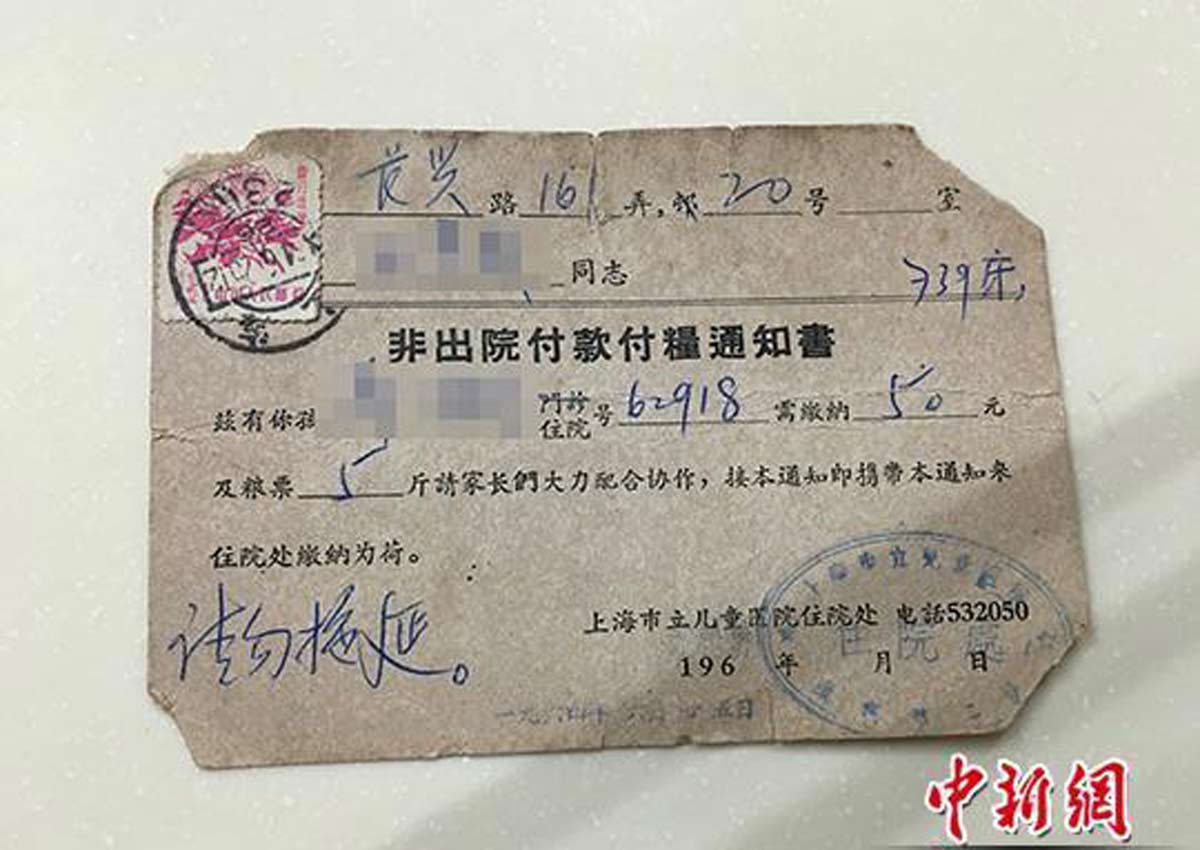 长兴路161弄,邨20号 室
同志
739床
非出院付款付糧通知書
兹有你孩 門診住院号62918需缴納50元
及粮票5斤請家长們大力配合协作,接本通知即携带本通知来
住院处缴納为荷。
请勿拖延。
上海市立儿童医院住院处 电話532050
196 年 月 日
住院處
五日
中新網